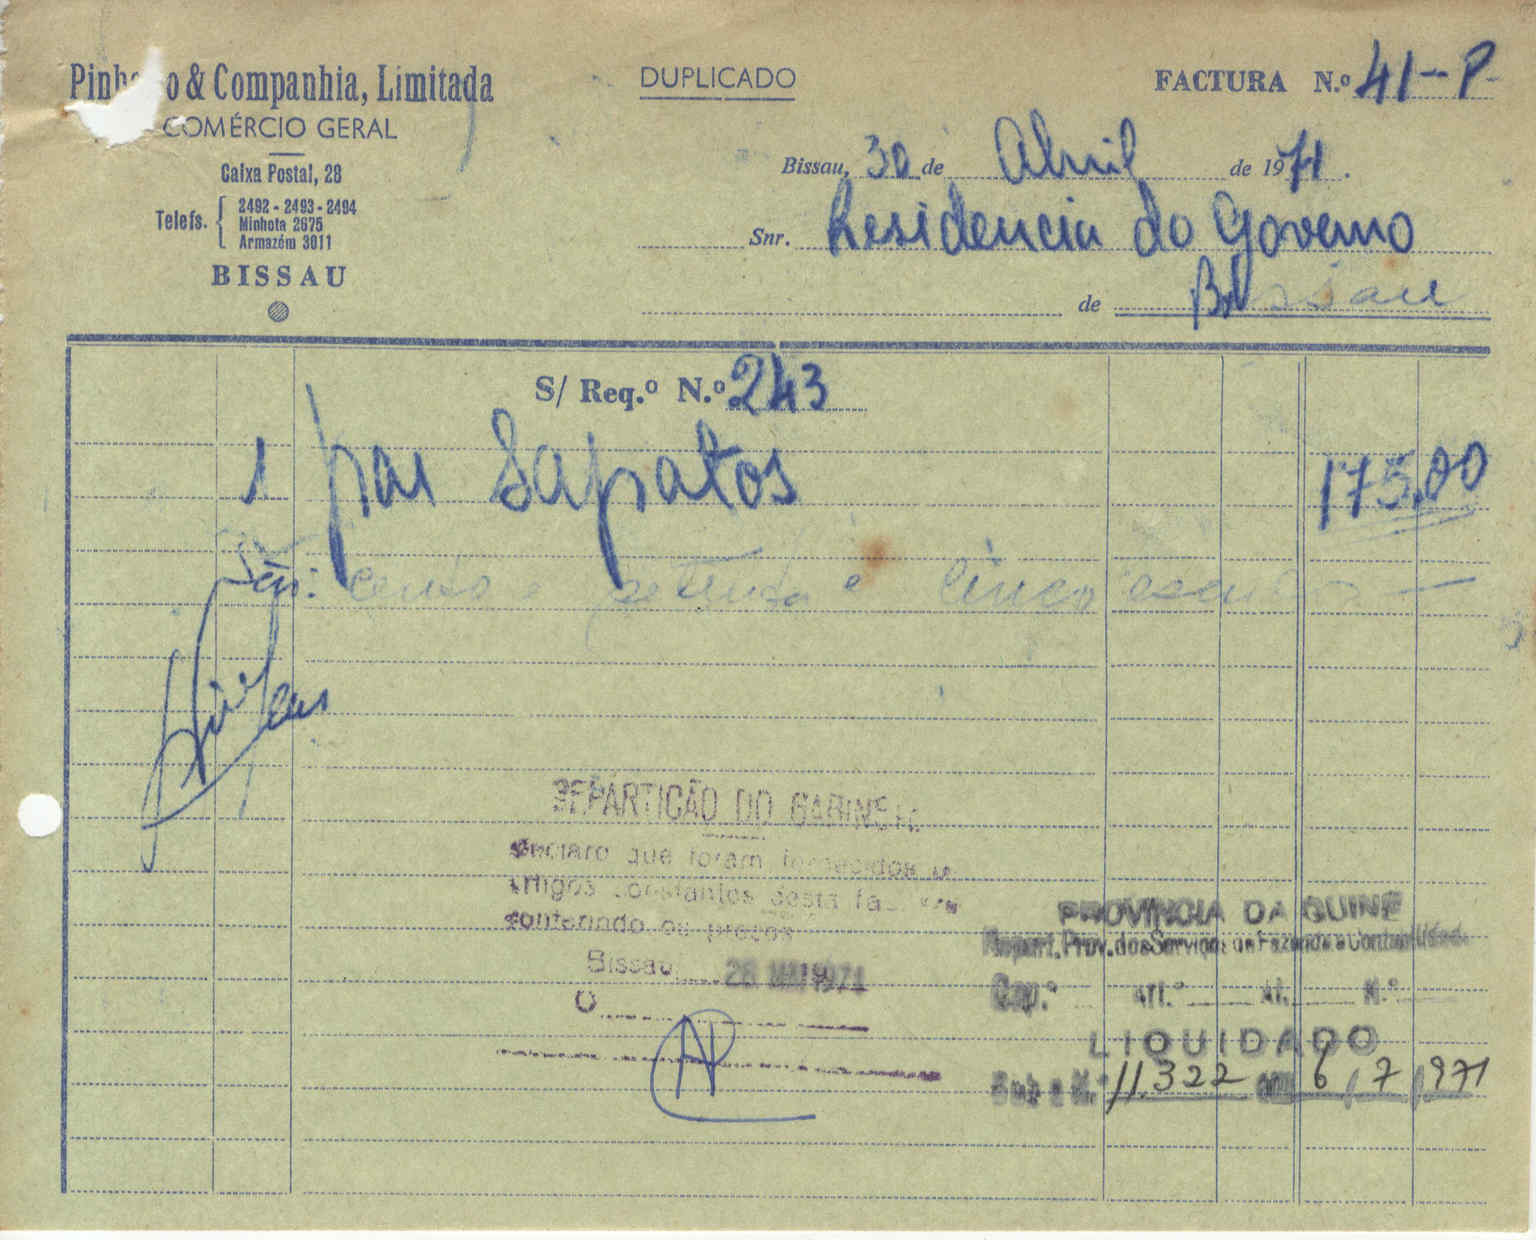 & Companhia, Limitada
COMÉRCIO GERAL
Caixa Postal, 28
Telefs. 2492 - 2493 - 2494
Minhota 2675
Armazém 3011
BISSAU
DUPLICADO
FACTURA N.º 41-P-
Bissau, 30 de Abril de 1971.
Snr. Residencia do Governo
de Bissau
S/ Req.º N.º 243
1 par Sapatos 175,00
São: cento e setenta e cinco escudos
REPARTIÇÃO DO GABINETE
Declaro que foram fornecidos os
artigos constantes desta
conferindo os preços
Bissau, 28 MAI 1971
O
PROVÍNCIA DA GUINÉ
Repart. Prov. dos Serviços de Fazenda e Contabilidade
Cap.º Art.º Al. N.º
LIQUIDADO
Sub o N.º 11.322 em 6/7/971